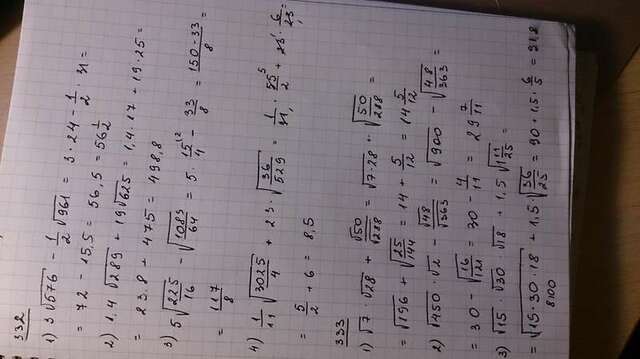 332
1) 3√576 - 1/2 √961 = 3 · 24 - 1/2 · 31 =
= 72 - 15,5 = 56,5 = 56 1/2
2) 1,4 √289 + 19 √625 = 1,4 · 17 + 19 · 25 =
= 23,8 + 475 = 498,8
3) 5 √(225/16) - √(1089/64) = 5 · 15/4 - 33/8 = (150 - 33)/8 =
= 117/8
4) 1/11 √(3025/4) + 23 · √(36/529) = 1/11 · 55/2 + 23 · 6/23 =
= 5/2 + 6 = 8,5
333
1) √7 · √28 + √50/√288 = √(7 · 28) + √(50/288) =
= √196 + √(25/144) = 14 + 5/12 = 14 5/12
2) √450 · √2 - √48/√363 = √900 - √(48/363) =
= 30 - √(16/121) = 30 - 4/11 = 29 7/11
3) √15 · √30 · √18 + 1,5 √(1 11/25) =
= √(15 · 30 · 18) + 1,5 √(36/25) = 90 + 1,5 · 6/5 = 91,8
8100